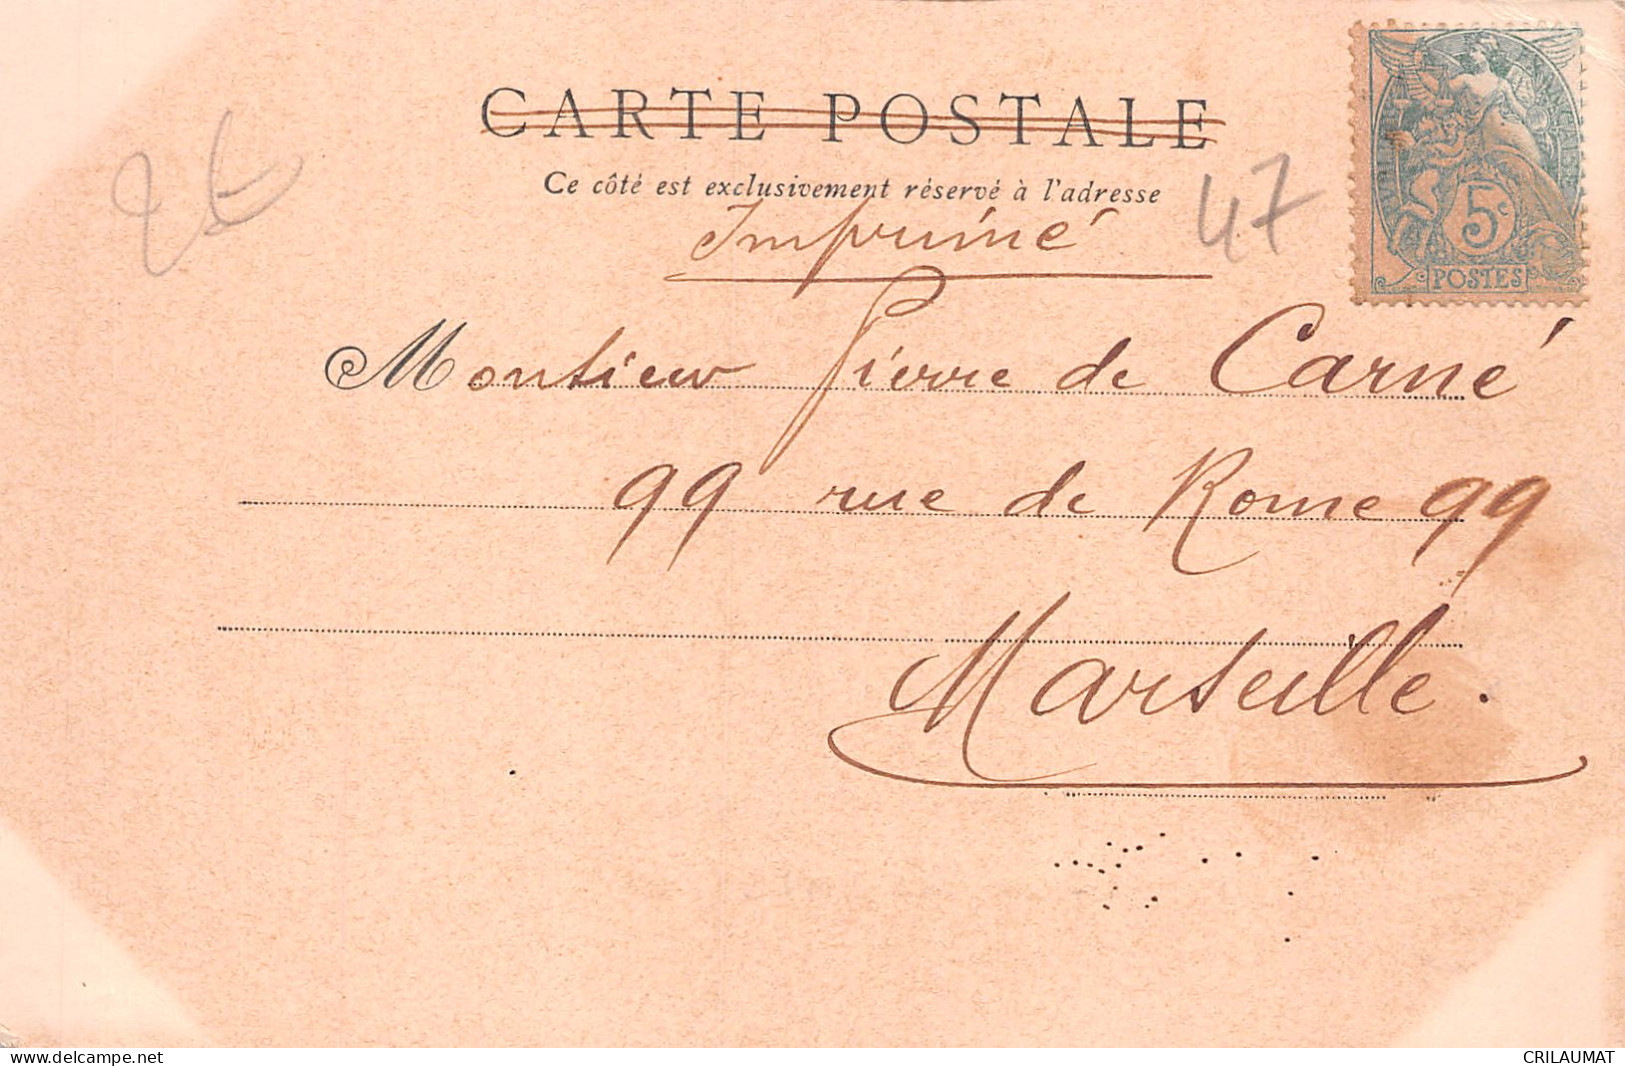 CARTE POSTALE
Ce côté est exclusivement réservé à l'adresse
Imprimé
47
5c
POSTES
Monsieur Pierre de Carné
99 rue de Rome 99
Marseille.
www.delcampe.net
CRILAUMAT